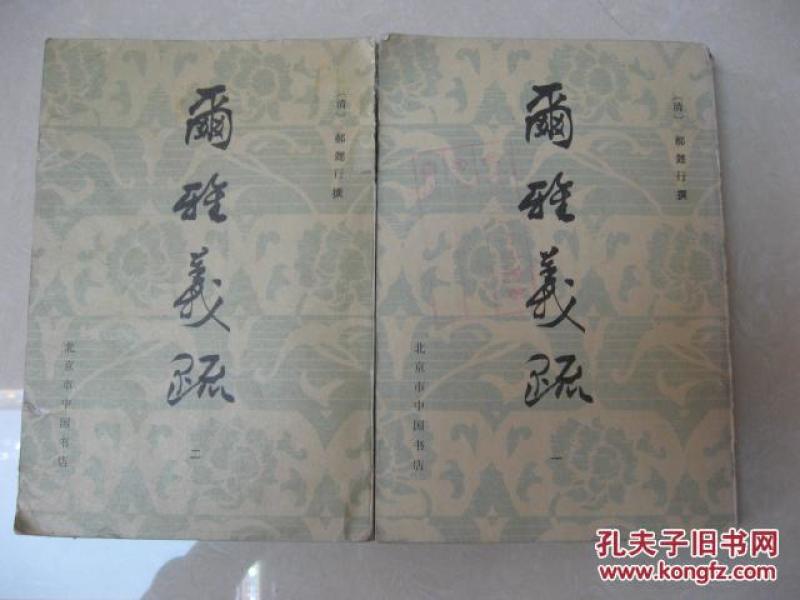 爾雅義疏
〔清〕郝懿行撰
北京市中国书店
二
爾雅義疏
〔清〕郝懿行撰
北京市中国书店
一
孔夫子旧书网
www.kongfz.com